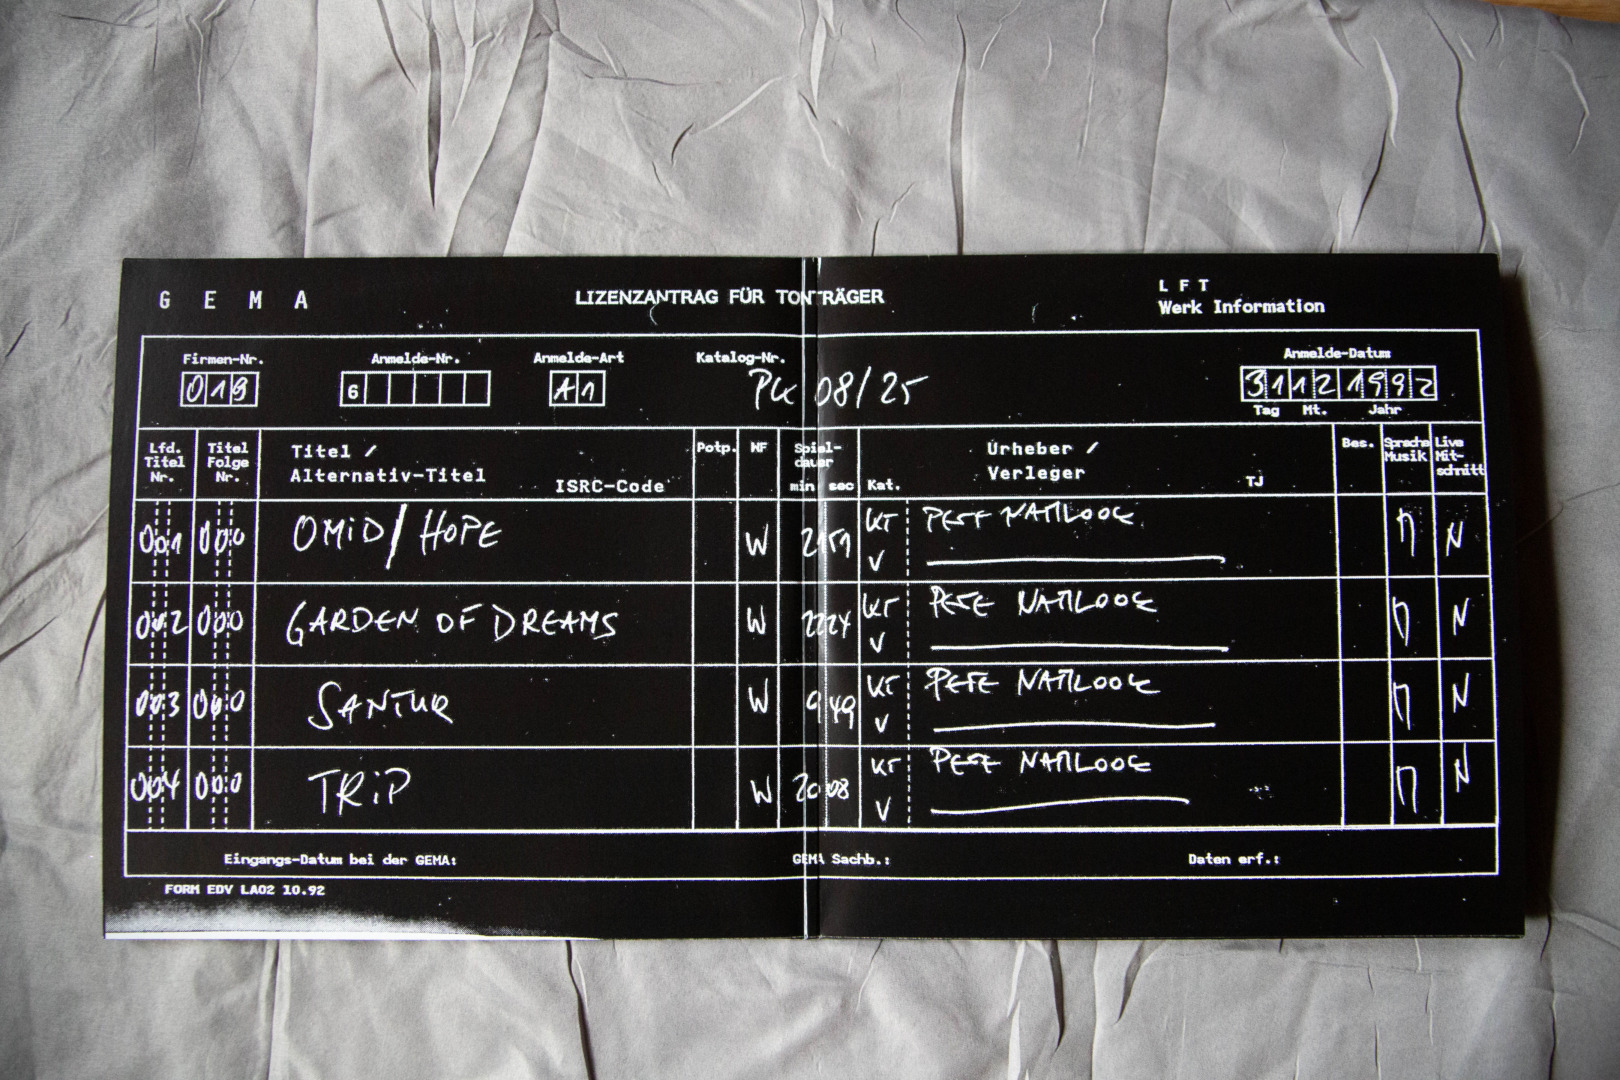 G E M A
LIZENZANTRAG FÜR TONTRÄGER
L F T
Werk Information
Firmen-Nr. Anmelde-Nr. Anmelde-Art Katalog-Nr. Anmelde-Datum
019 6 A1 PK 08/25 31121992
Tag Mt. Jahr
Lfd. Titel Nr.
Titel Folge Nr.
Titel /
Alternativ-Titel ISRC-Code
Potp.
WF
Spiel-
dauer
min sec
Kat.
Urheber /
Verleger TJ
Bes.
Sprache
Musik
Live
Mit-
schnitt
001 000 OMID/HOPE W 21 59 KT PETE NAMLOOK n N
V
002 000 GARDEN OF DREAMS W 22 24 KT PETE NAMLOOK n N
V
003 000 SANTUR W 9 49 KT PETE NAMLOOK n N
V
004 000 TRiP W 20 08 KT PETE NAMLOOK n N
V
Eingangs-Datum bei der GEMA: GEMA Sachb.: Daten erf.:
FORM EDV LA02 10.92